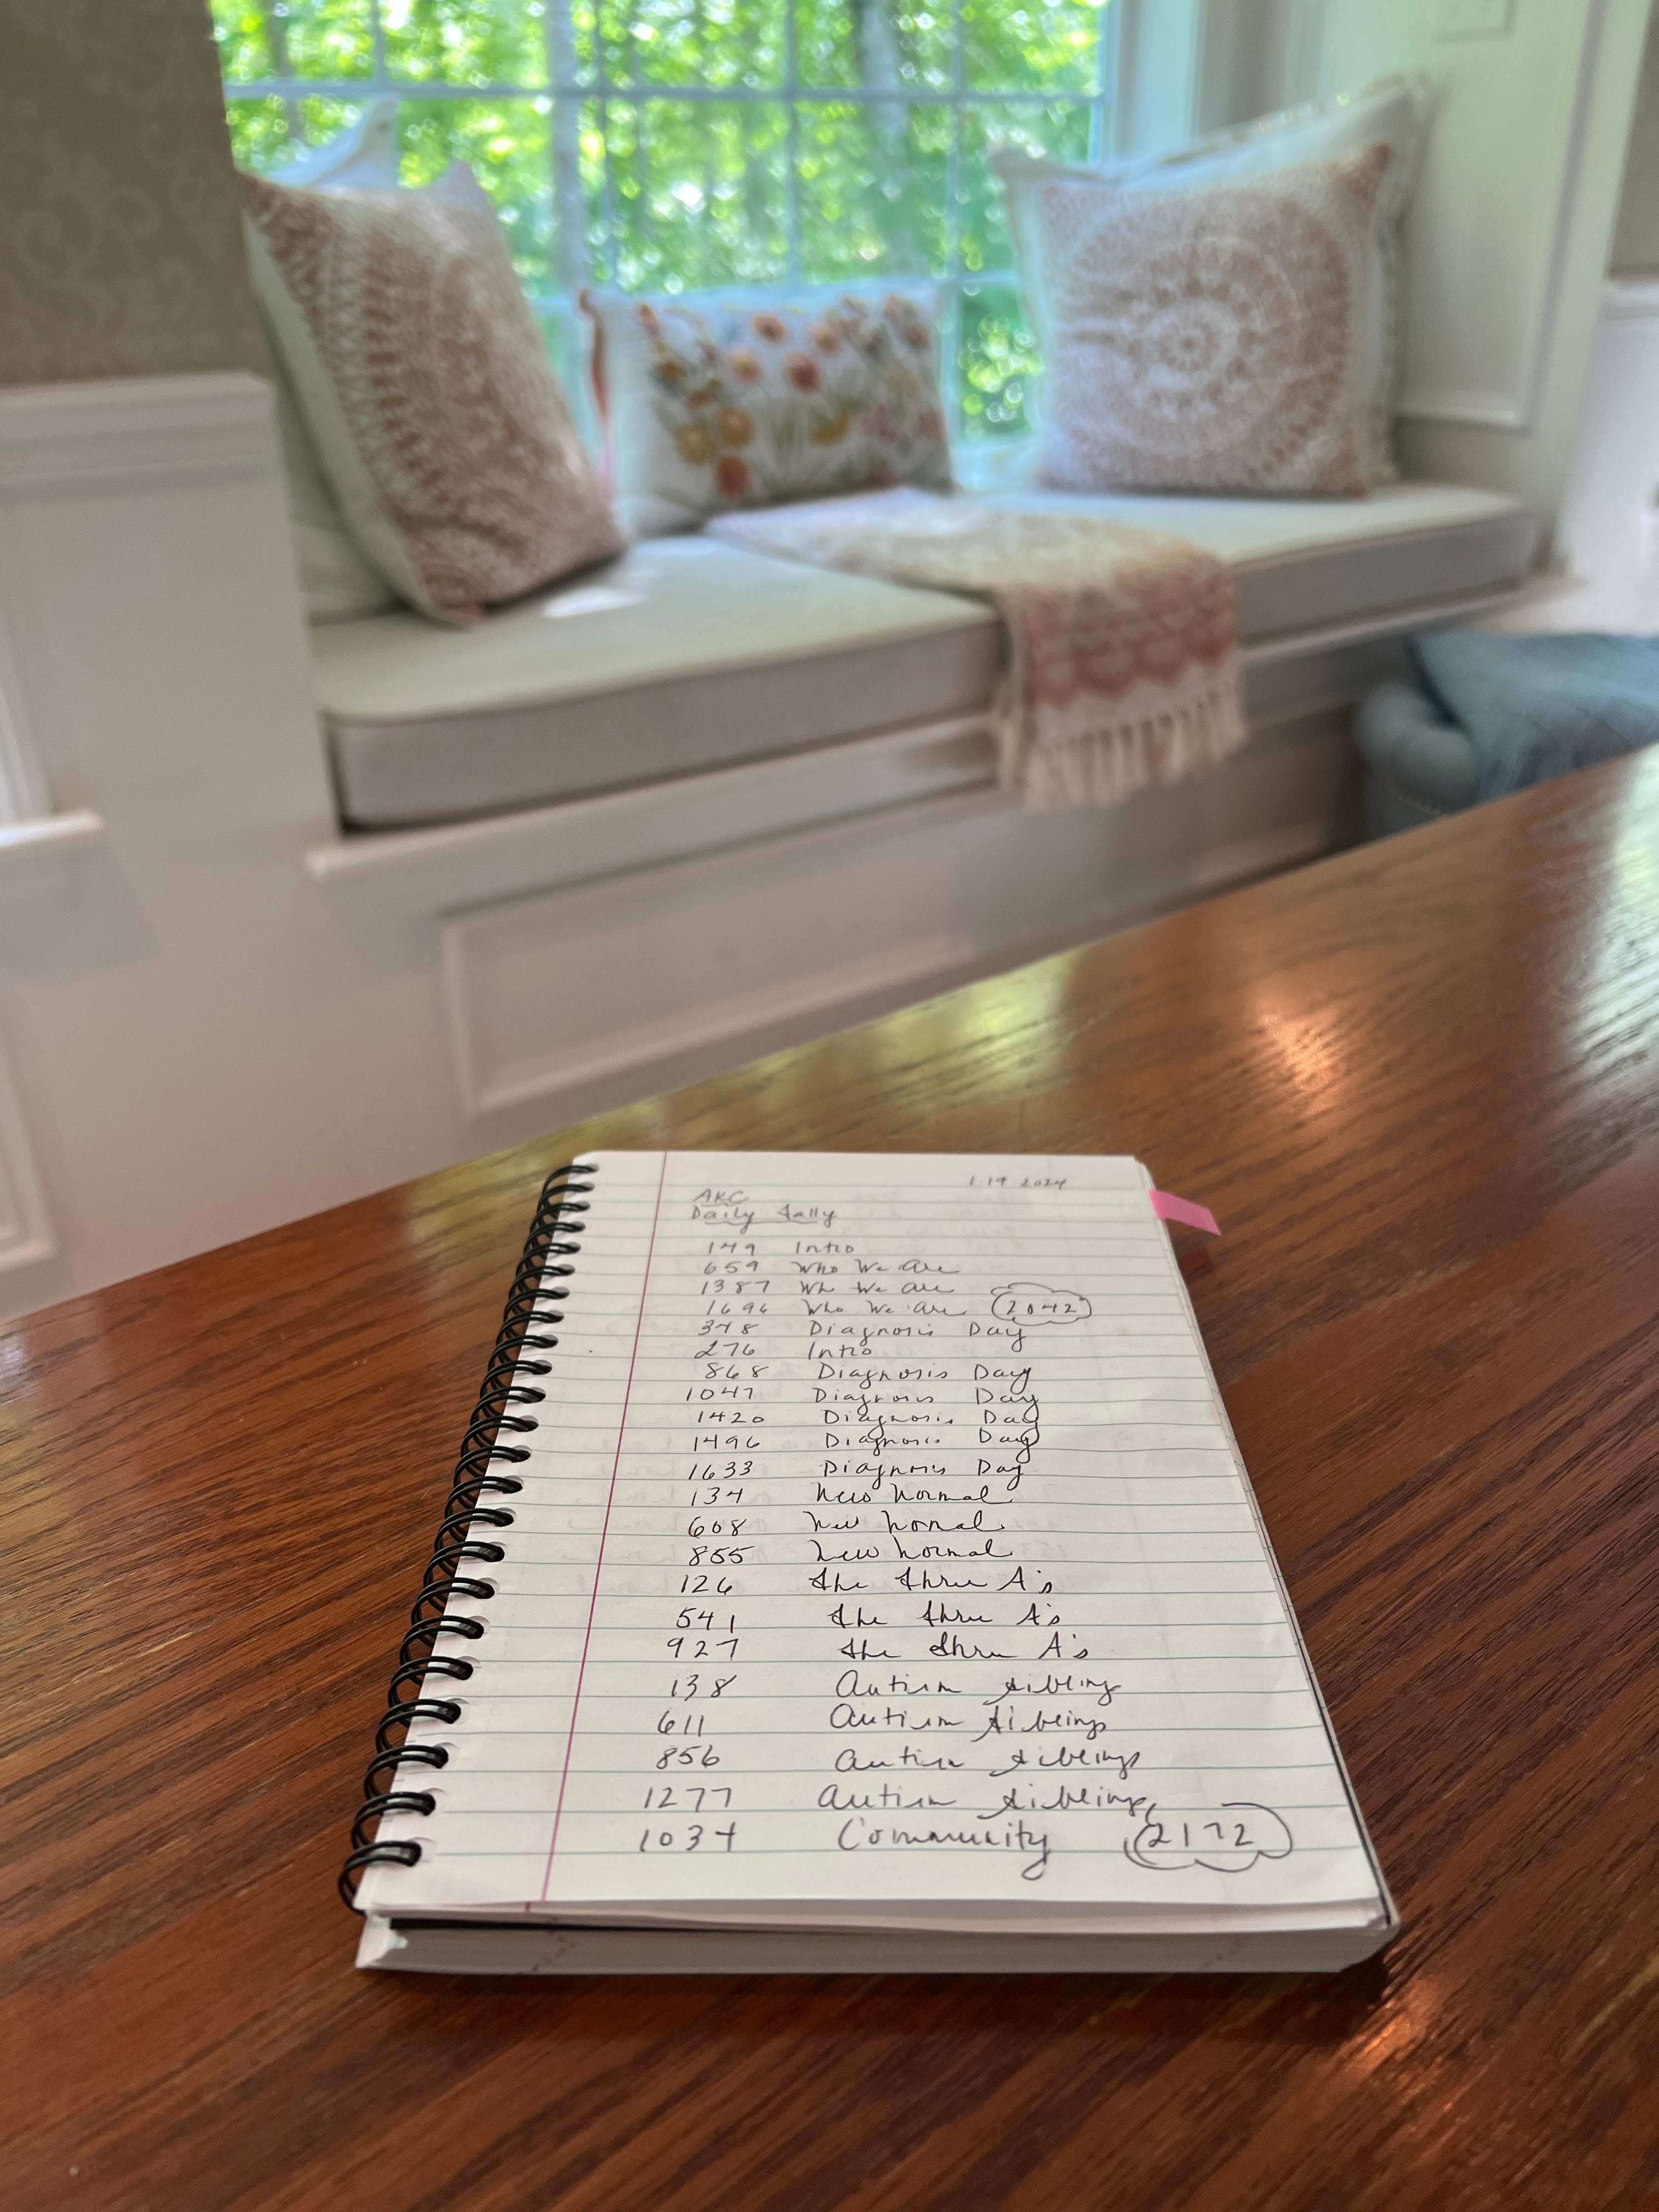 1 19 2024
AKC
Daily Tally
149 Intro
659 Who We Are
1387 Who We Are
1696 Who We Are 2042
348 Diagnosis Day
276 Intro
868 Diagnosis Day
1047 Diagnosis Day
1420 Diagnosis Day
1496 Diagnosis Day
1633 Diagnosis Day
134 New Normal
608 New Normal
855 New Normal
126 The Three A's
541 The Three A's
927 The Three A's
138 Autism Sibling
611 Autism Siblings
856 Autism Siblings
1277 Autism Siblings
1034 Community 2172